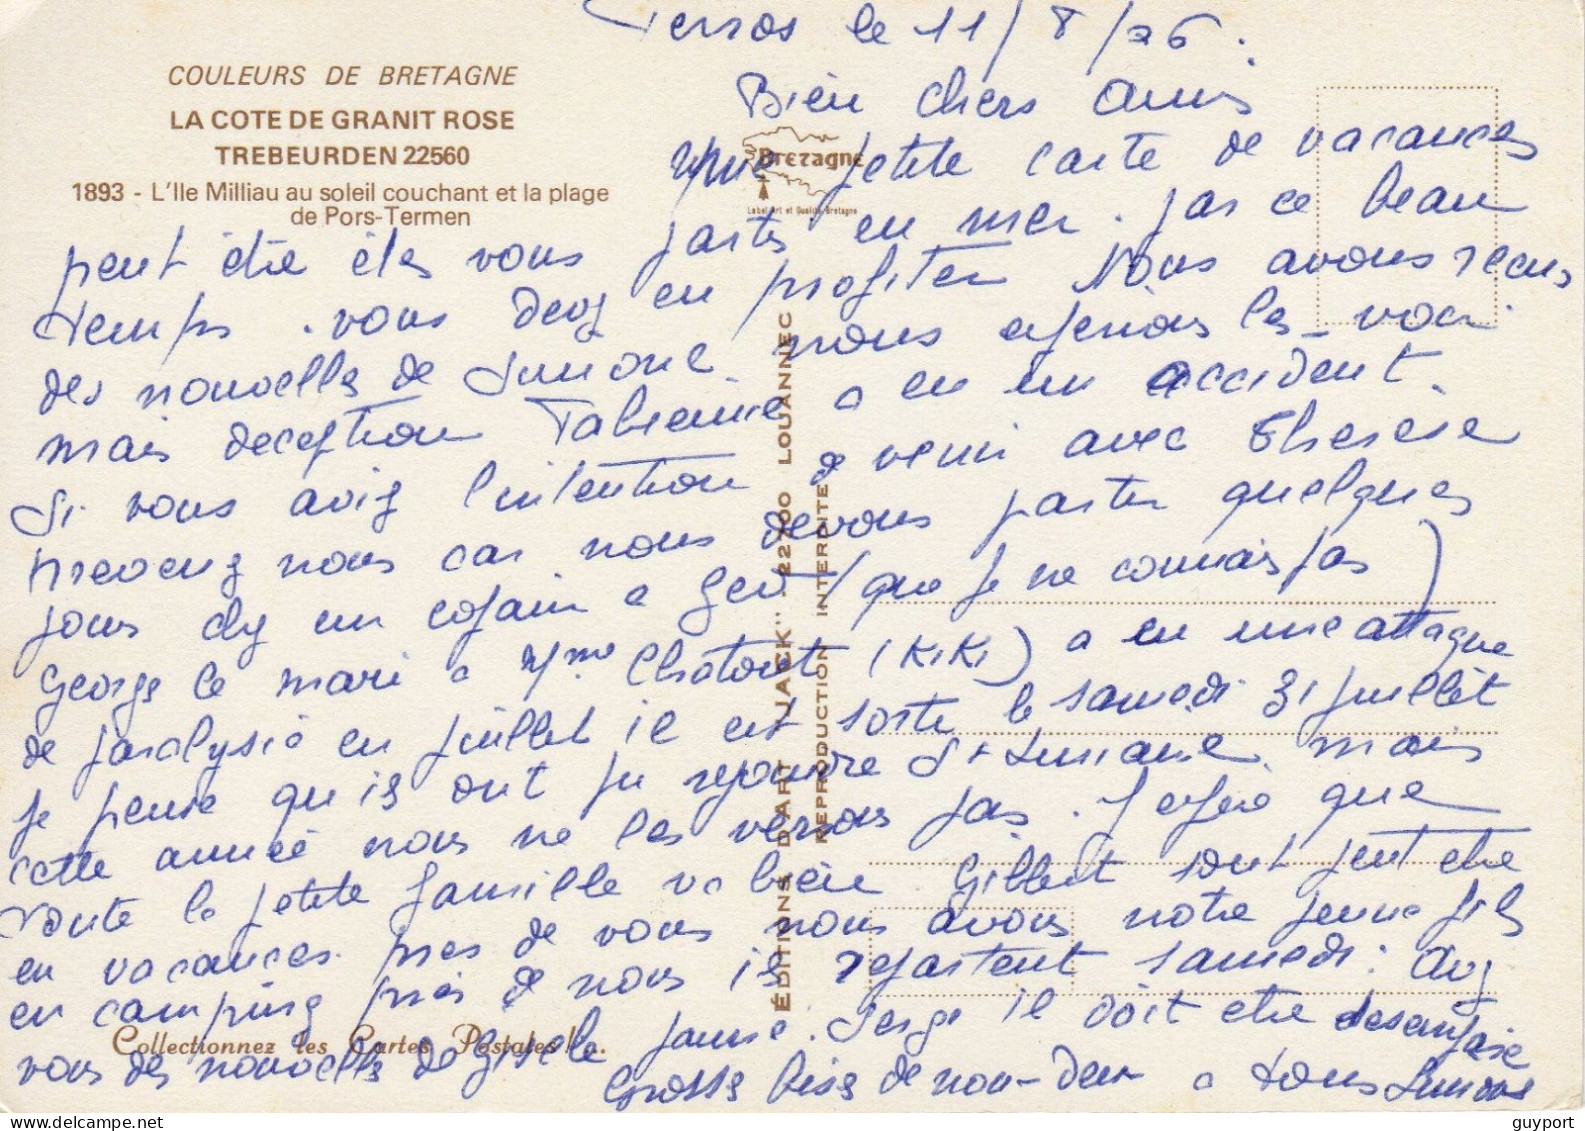 COULEURS DE BRETAGNE
LA COTE DE GRANIT ROSE
TREBEURDEN 22560
1893 - L'Ile Milliau au soleil couchant et la plage
de Pors-Termen
Bretagne
Label Art et Qualité Bretagne
ÉDITIONS D'ART "JACK" - 22700 LOUANNEC
REPRODUCTION INTERDITE
Collectionnez les Cartes Postales!...
le 11/8/76.
Bien chers amis
Une petite carte de vacances
peut être êtes vous partis en mer. par ce beau
temps. vous devez en profiter Nous avons recus
des nouvelles de Simone nous esperions les voir.
mais deception Fabienne a eu un accident.
Si vous aviez l'intention de venir avec Therese
prevenez nous car nous devons partir quelques
jours chez un copain a Geo (que je ne connais pas)
George le mari a Mme (KiKi) a eu une attaque
de paralysie en juillet il est sorti le samedi 31 juillet
je pense qu'ils ont pu rejoindre St mais
cette année nous ne les verrons pas. J'espère que
toute la petite famille va bien Gilbert sont peut etre
en vacances. près de vous nous avons notre jeune fils
en camping près de nous ils repartent samedi. Avez
vous des nouvelles de Gisele Serge il doit etre
Grosses bises de nous deux a tous Simone
guyport